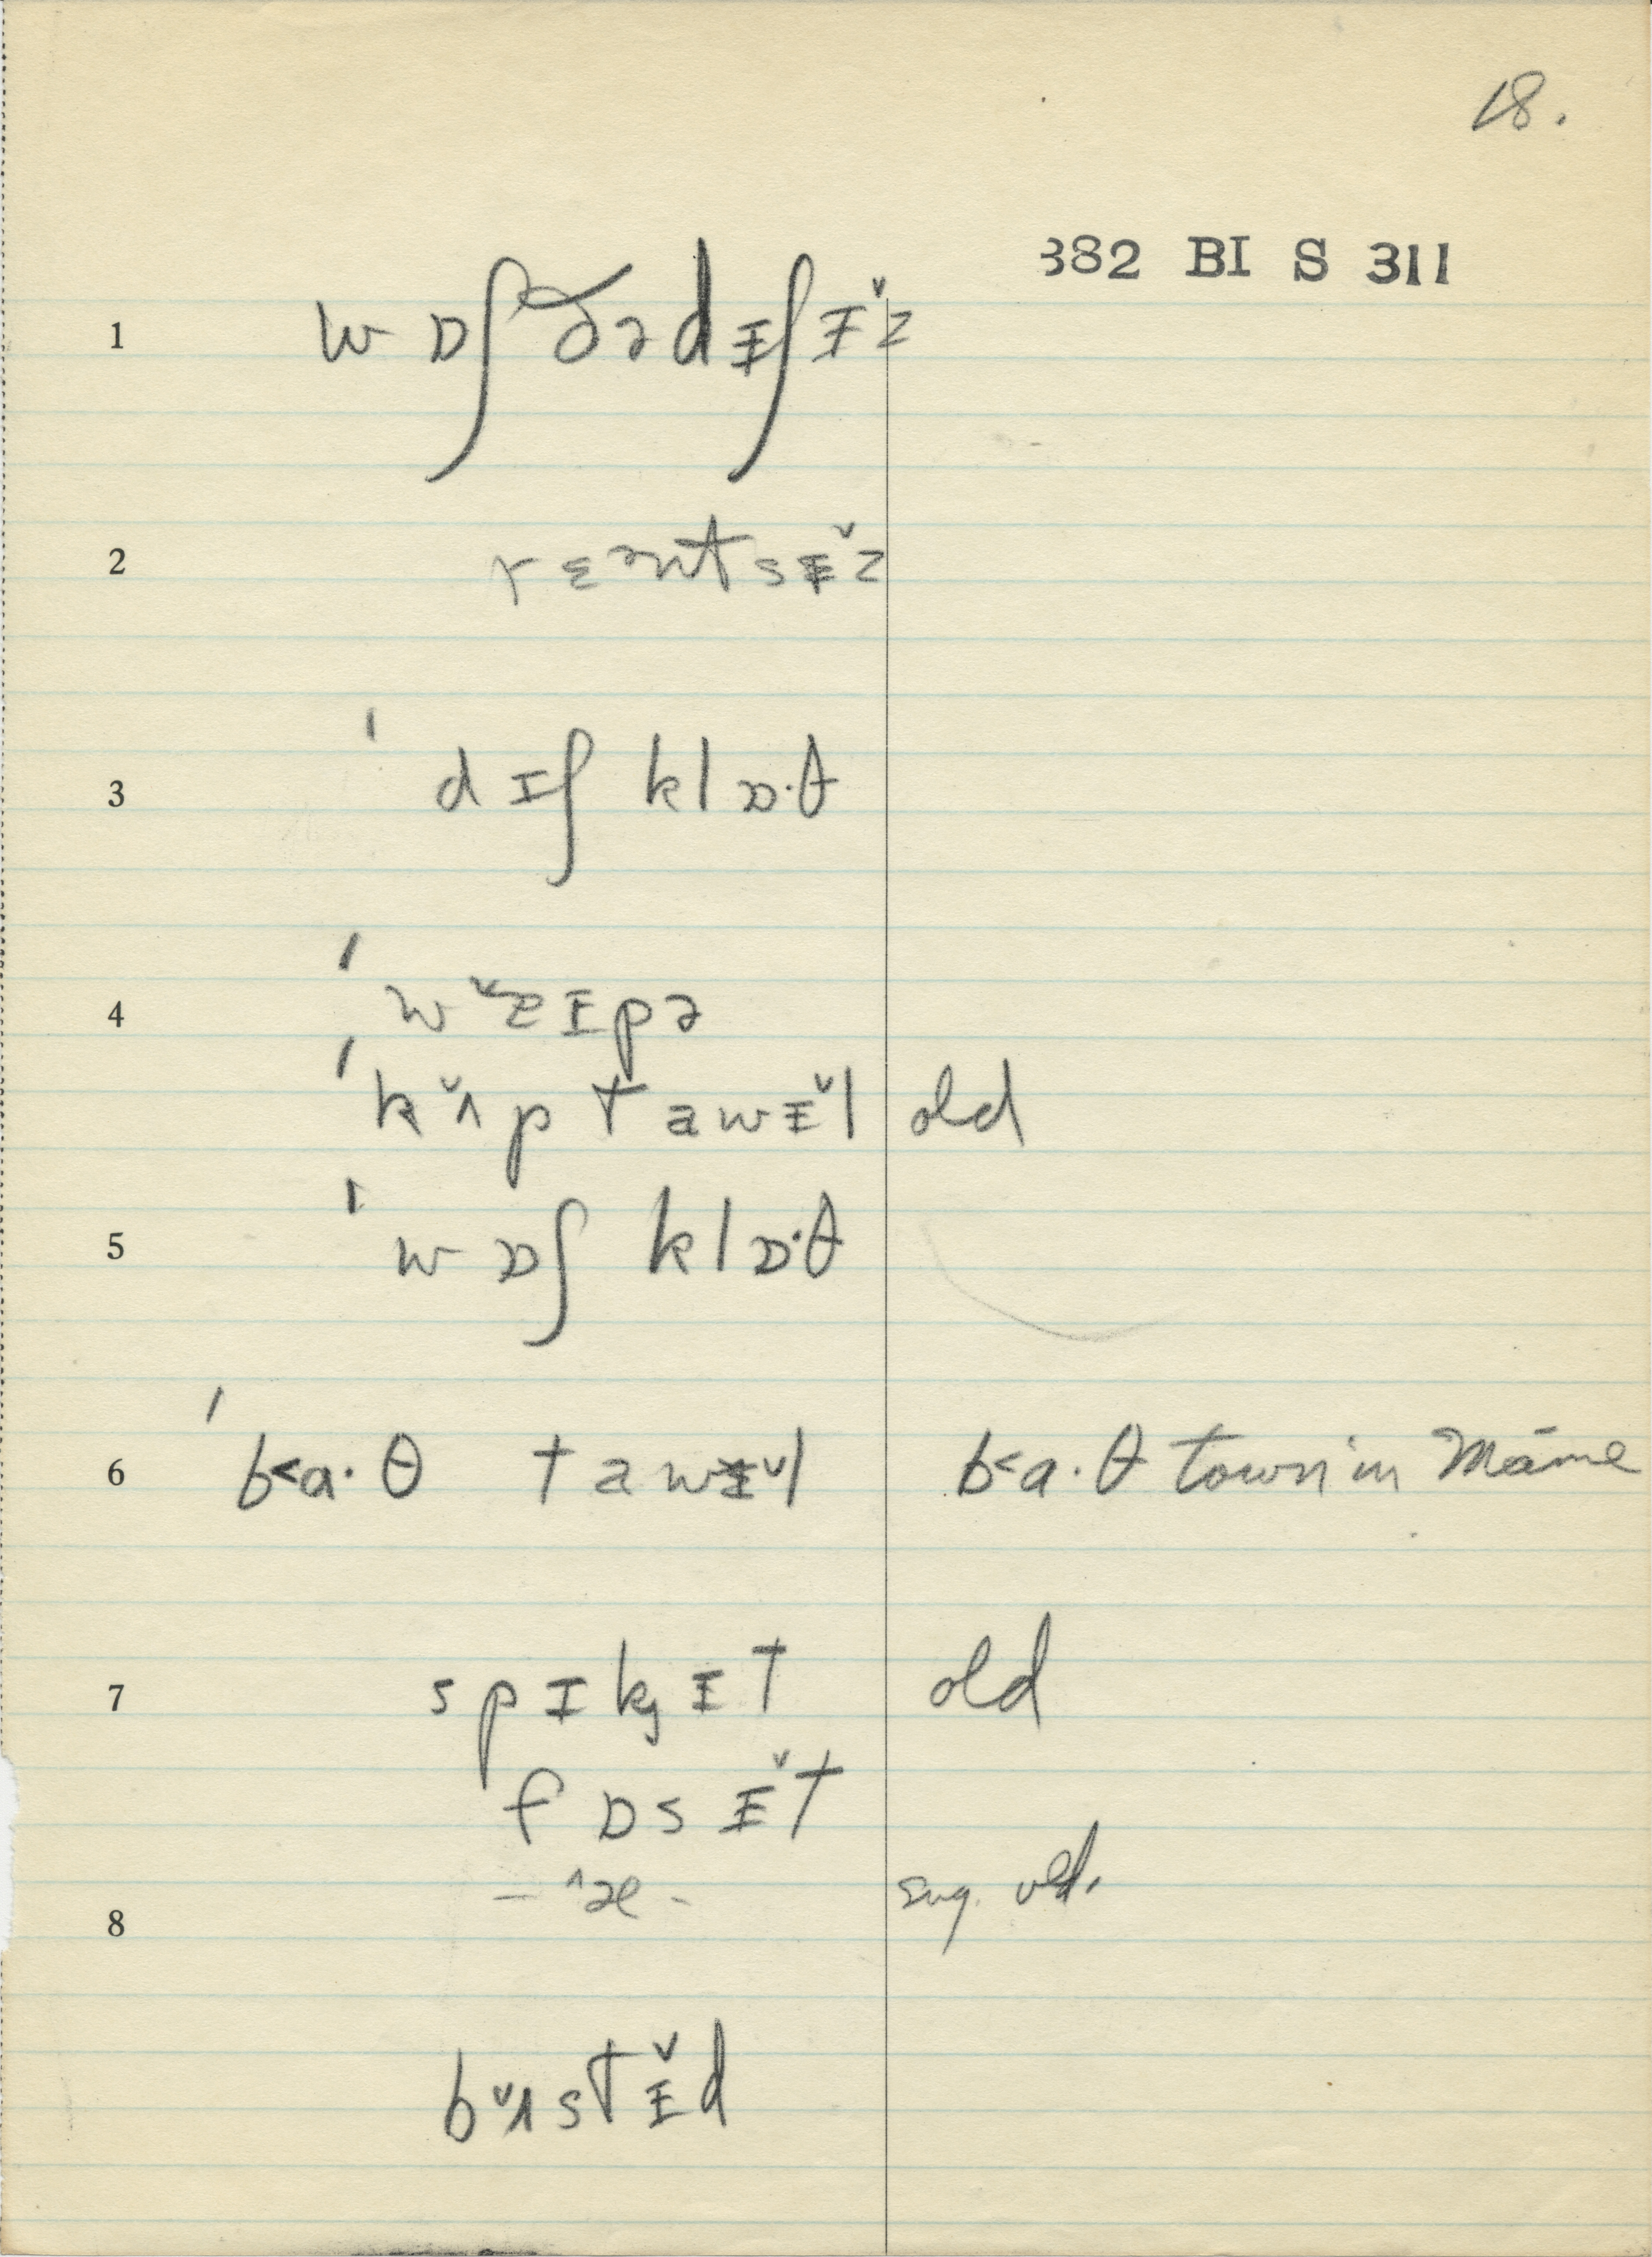 18.
382 BI S 311
1 wɒʃ ðə dɪʃɪ̌z
2 rɛənt sɪ̌z
3 ˈdɪʃ klɒ·θ
4 ˈwˇɐɪpə
ˈkʌ̌p tawɪ̌l old
5 ˈwɒʃ klɒ·θ
6 ˈb<a·θ tawɪ̌l b<a·θ town in Maine
7 spɪkɪt old
fɒsɪ̌t
8 – ^æ - sug. old.
bʌ̌stɪ̌d